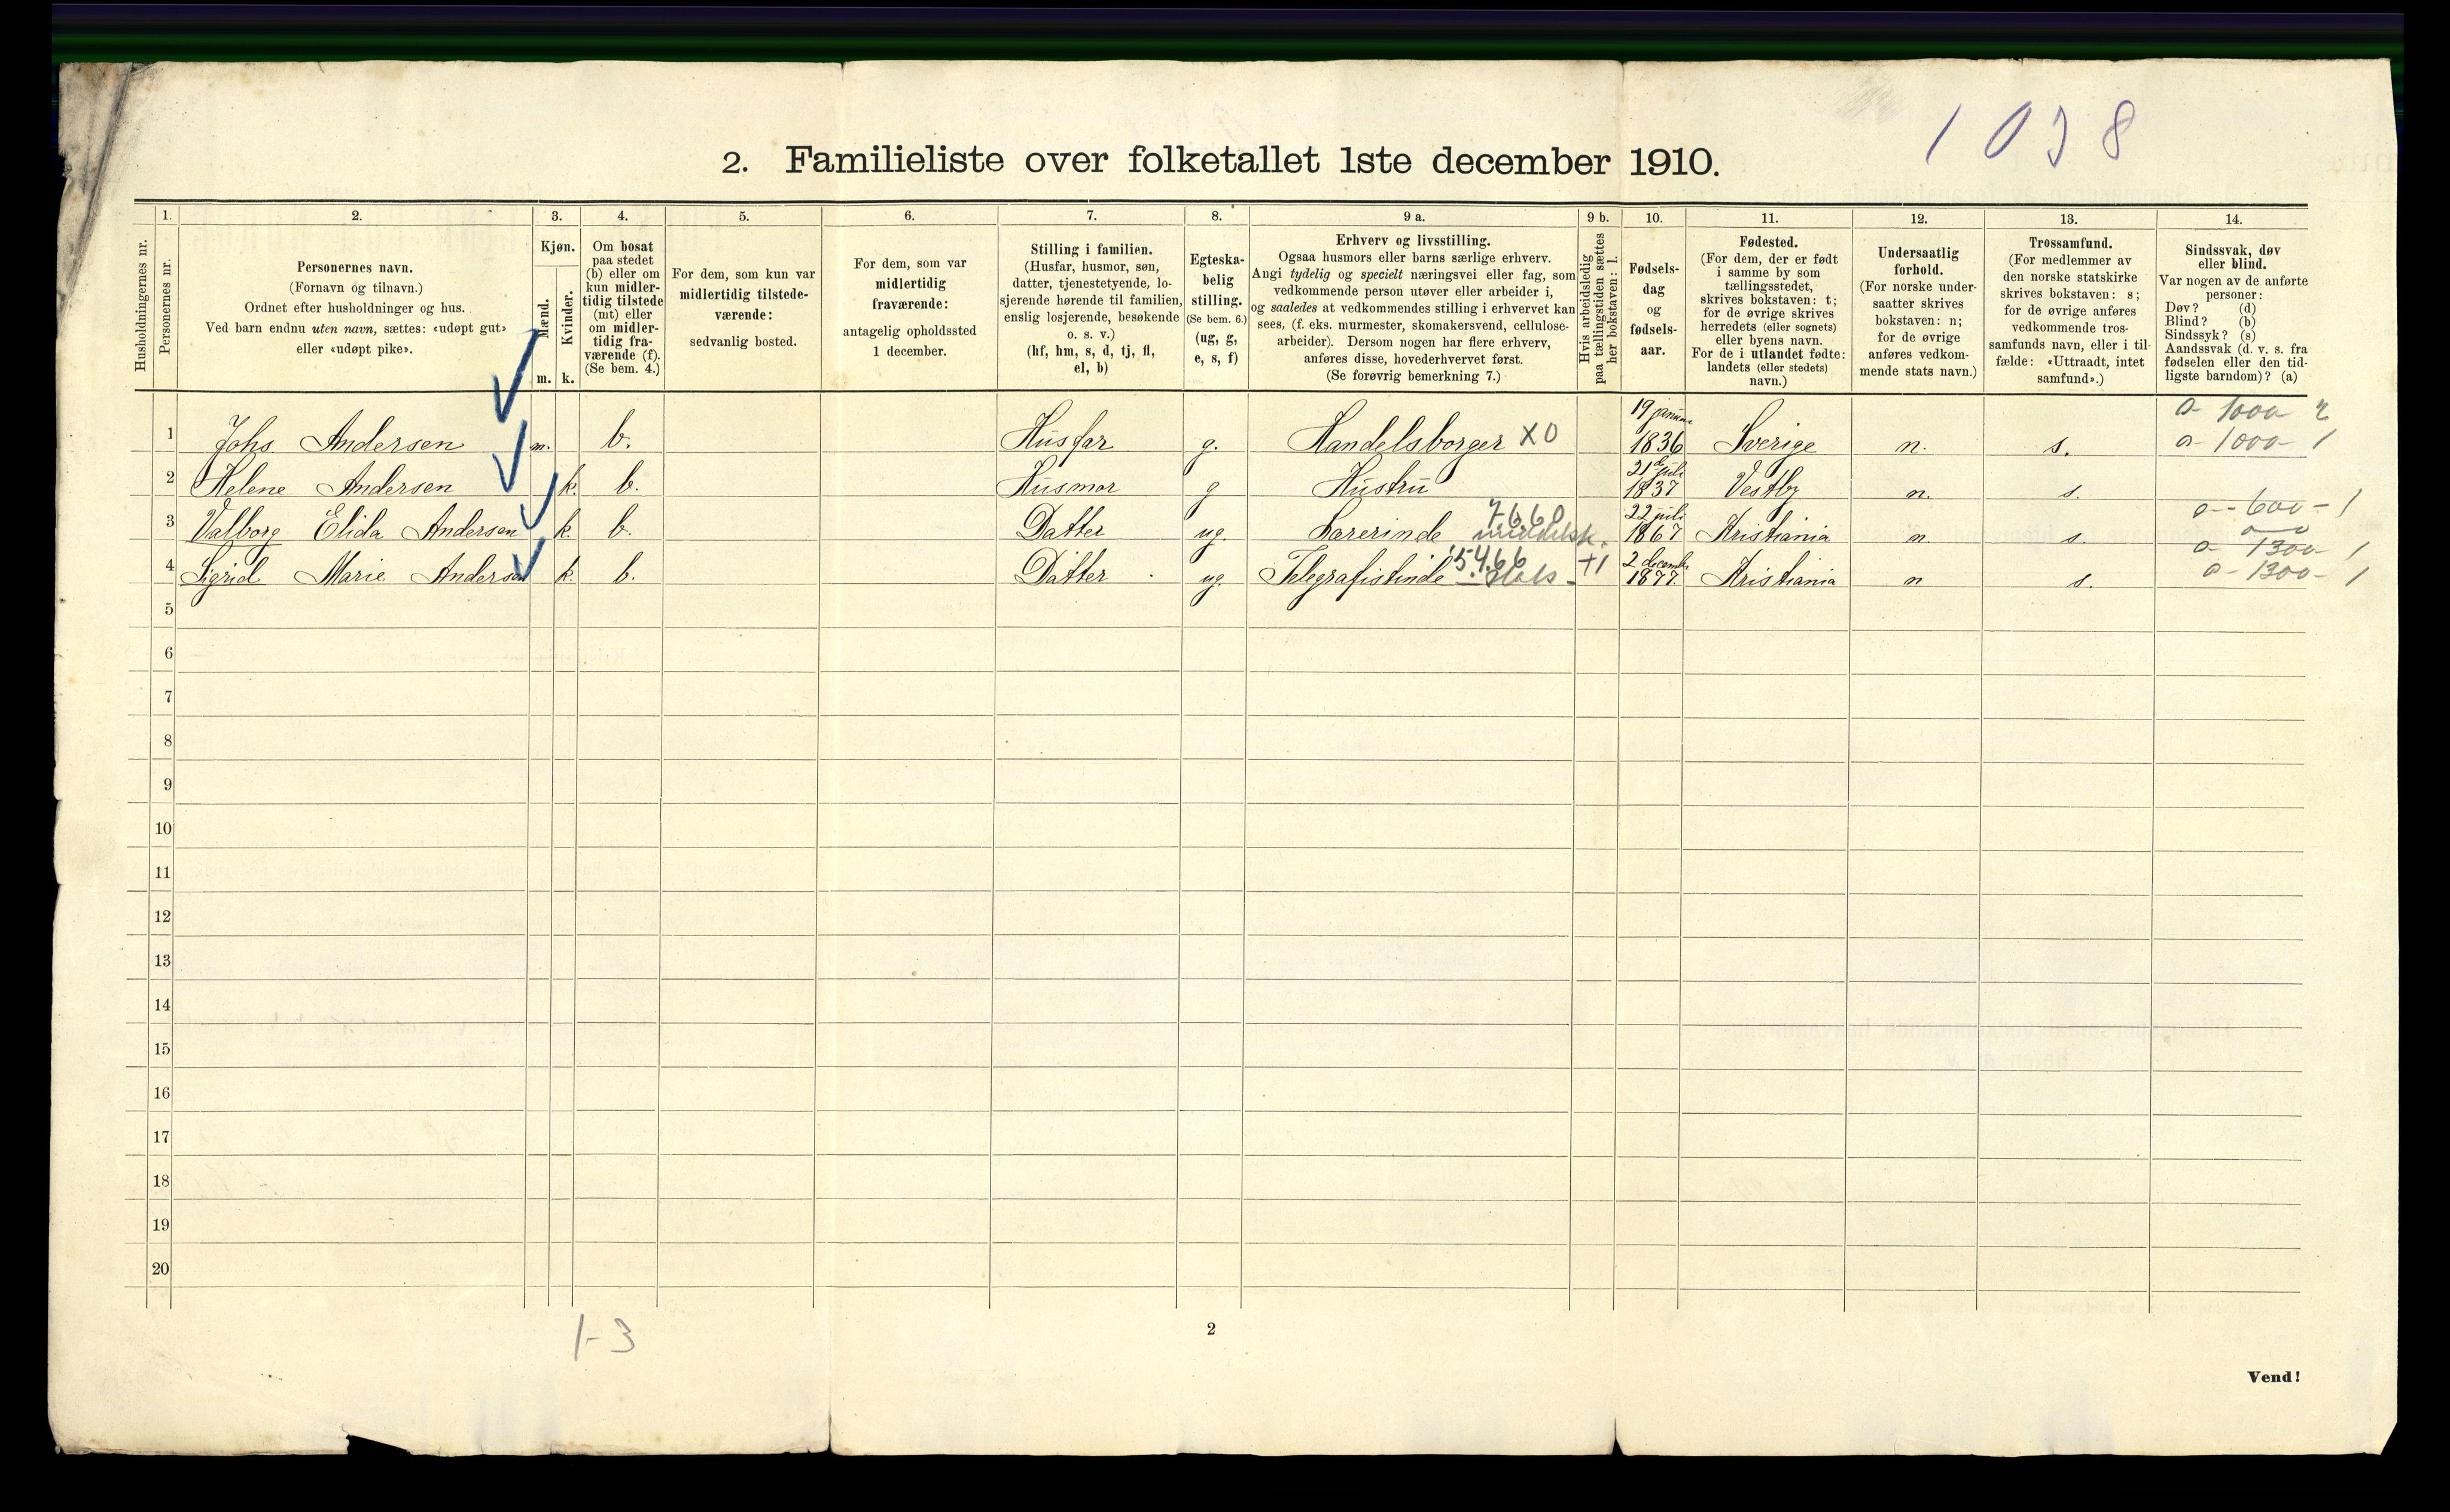 1038
2. Familieliste over folketallet 1ste december 1910.
Husholdningernes nr.
1.
Personernes nr.
2.
Personernes navn.
(Fornavn og tilnavn.)
Ordnet efter husholdninger og hus.
Ved barn endnu uten navn, sættes: «udøpt gut»
eller «udøpt pike».
3.
Kjøn.
Mænd.
Kvinder.
m. k.
4.
Om bosat
paa stedet
(b) eller om
kun midler-
tidig tilstede
(mt) eller
om midler-
tidig fra-
værende (f).
(Se bem. 4.)
5.
For dem, som kun var
midlertidig tilstede-
værende:
sedvanlig bosted.
6.
For dem, som var
midlertidig
fraværende:
antagelig opholdssted
1 december.
7.
Stilling i familien.
(Husfar, husmor, søn,
datter, tjenestetyende, lo-
sjerende hørende til familien,
enslig losjerende, besøkende
o. s. v.)
(hf, hm, s, d, tj, fl,
el, b)
8.
Egteska-
belig
stilling.
(Se bem. 6.)
(ug, g,
e, s, f)
9 a.
Erhverv og livsstilling.
Ogsaa husmors eller barns særlige erhverv.
Angi tydelig og specielt næringsvei eller fag, som
vedkommende person utøver eller arbeider i,
og saaledes at vedkommendes stilling i erhvervet kan
sees, (f. eks. murmester, skomakersvend, cellulose-
arbeider). Dersom nogen har flere erhverv,
anføres disse, hovederhvervet først.
(Se forøvrig bemerkning 7.)
9 b.
Hvis arbeidsledig
paa tællingstiden sættes
her bokstaven: l.
10.
Fødsels-
dag
og
fødsels-
aar.
11.
Fødested.
(For dem, der er født
i samme by som
tællingsstedet,
skrives bokstaven: t;
for de øvrige skrives
herredets (eller sognets)
eller byens navn.
For de i utlandet fødte:
landets (eller stedets)
navn.)
12.
Undersaatlig
forhold.
(For norske under-
saatter skrives
bokstaven: n;
for de øvrige
anføres vedkom-
mende stats navn.)
13.
Trossamfund.
(For medlemmer av
den norske statskirke
skrives bokstaven: s;
for de øvrige anføres
vedkommende tros-
samfunds navn, eller i til-
fælde: «Uttraadt, intet
samfund».)
14.
Sindssvak, døv
eller blind.
Var nogen av de anførte
personer:
Døv? (d)
Blind? (b)
Sindssyk? (s)
Aandssvak (d. v. s. fra
fødselen eller den tid-
ligste barndom)? (a)
19 januar 0- 1000- 2
1 Johs. Andersen m. b. Husfar g. Handelsborger X0 1836 Sverige n. s. 0-1000- 1
21de juli
2 Helene Andersen k. b. Husmor g Hustru 1837 Vestby n. s.
7660 22 juli 0--600-1
3 Valborg Elida Andersen k. b. Datter ug. Lærerinde middelsk. 1867 Kristiania n. s.
5466 +1 2 decembr 0- 1300- 1
4 Sigrid Marie Andersen k. b. Datter ug. Telegrafistinde Stats- 1877. Kristiania n s. 0-1300- 1
5
6
7
8
9
10
11
12
13
14
15
16
17
18
19
20
1-3
2
Vend!